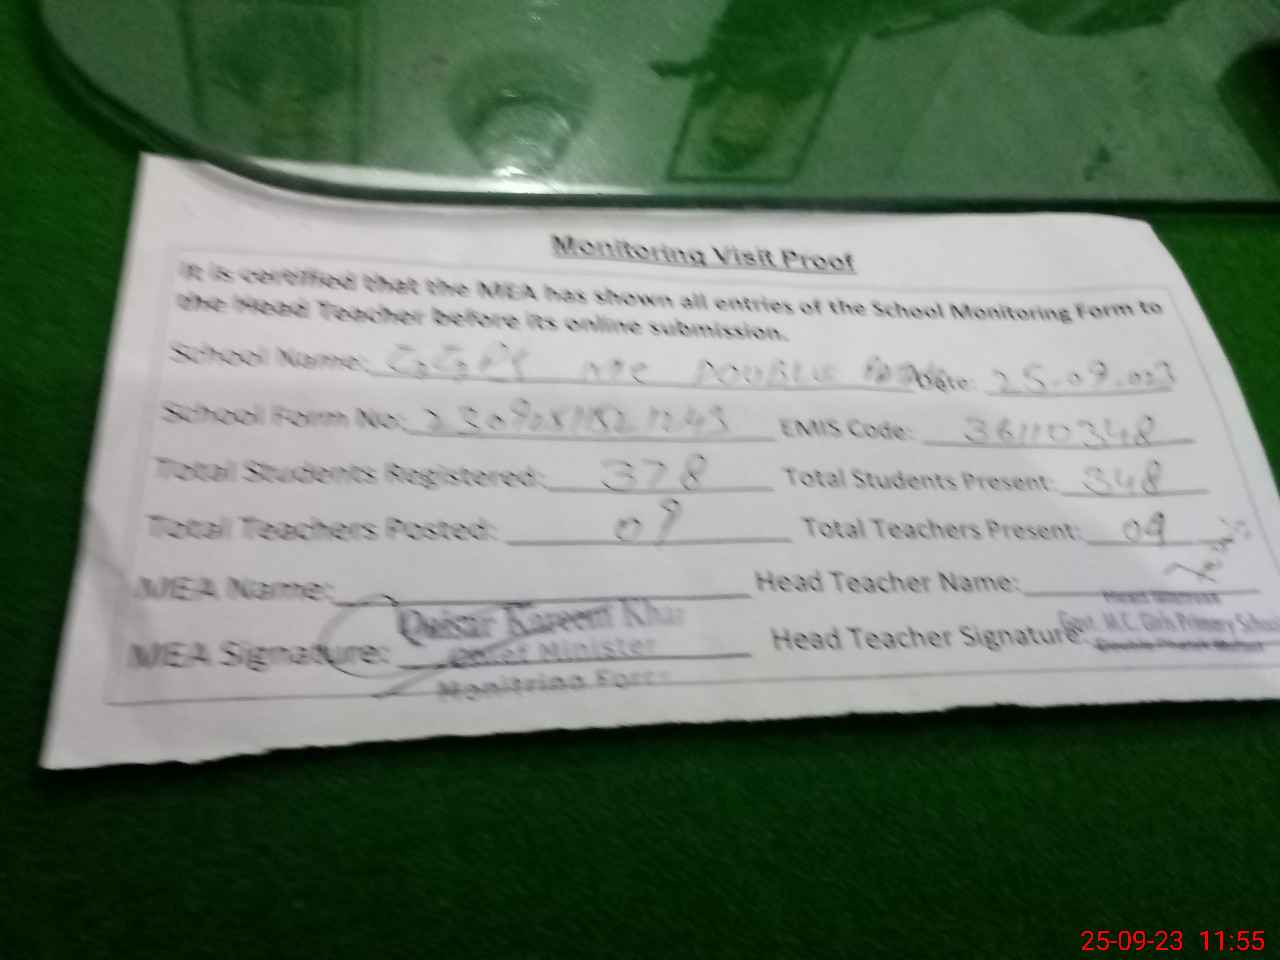 Monitoring Visit Proof
It is certified that the MEA has shown all entries of the School Monitoring Form to
the Head Teacher before its online submission.
School Name: Date: 25.09.023
School Form No: EMIS Code: 36110348
Total Students Registered: 378 Total Students Present: 348
Total Teachers Posted: 09 Total Teachers Present: 09
MEA Name: Head Teacher Name:
Kareem Khan
MEA Signature: Chief Minister Head Teacher Signature: Govt. M.C. Girls Primary School
Monitring Force
25-09-23 11:55